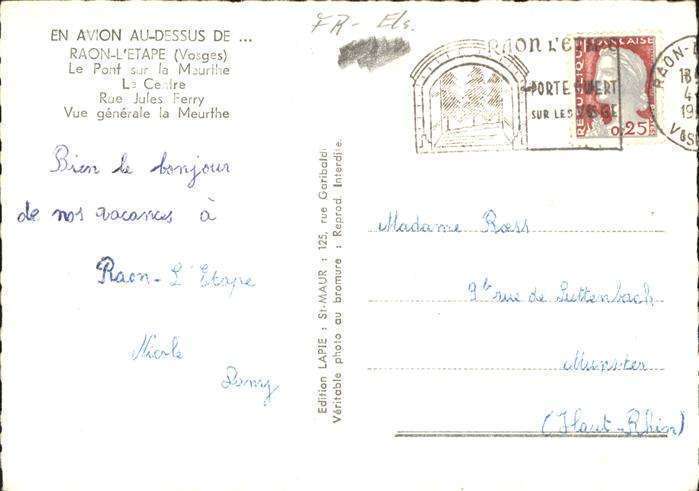 EN AVION AU-DESSUS DE ...
RAON-L'ETAPE (Vosges)
Le Pont sur la Meurthe
Le Centre
Rue Jules Ferry
Vue générale la Meurthe
Bien le bonjour
de nos vacances à
Raon-L'Etape
Nicole
Edition LAPIE : St-MAUR : 125, rue Garibaldi
Véritable photo au bromure : Reprod Interdite.
FR-Els.
RAON L'ETAPE
PORTE OUVERTE
SUR LES VOSGES
REPUBLIQUE FRANÇAISE
0,25
RAON-L
18
4
19
VOSG
Madame Roess
9b rue de Luttenbach
Munster
(Haut-Rhin)